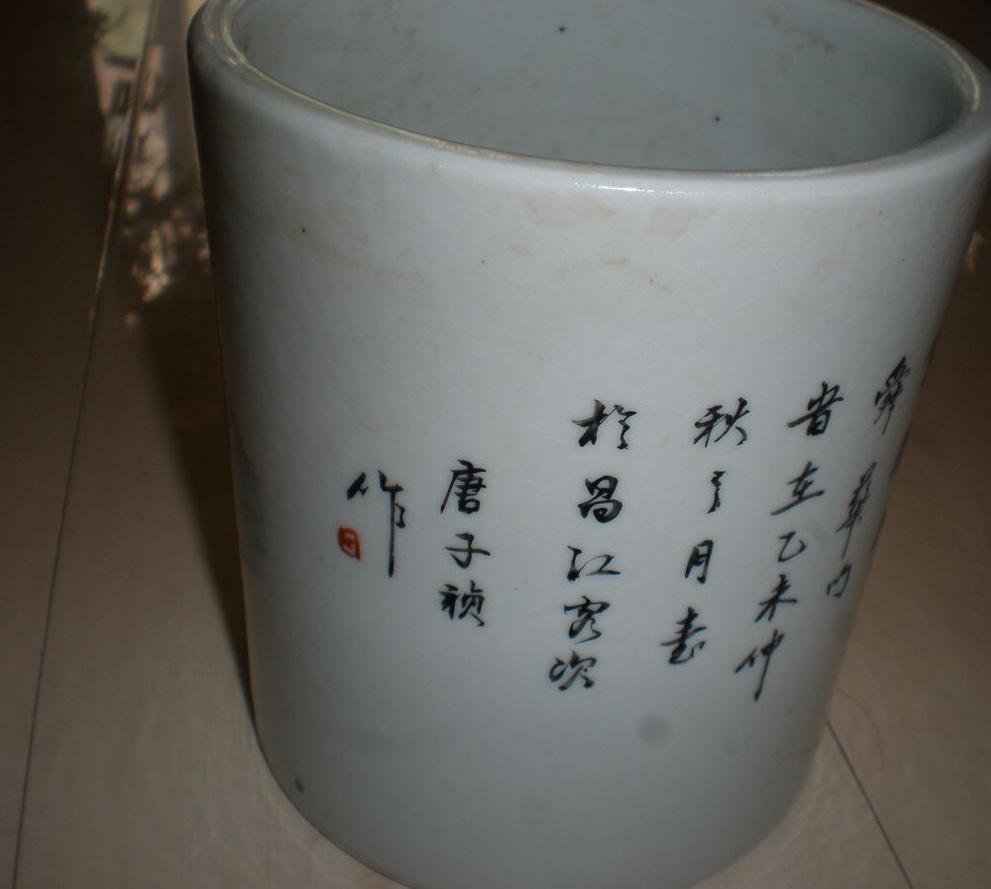 舜華
旹在乙未仲
秋之月畫
於昌江客次
唐子禎
作